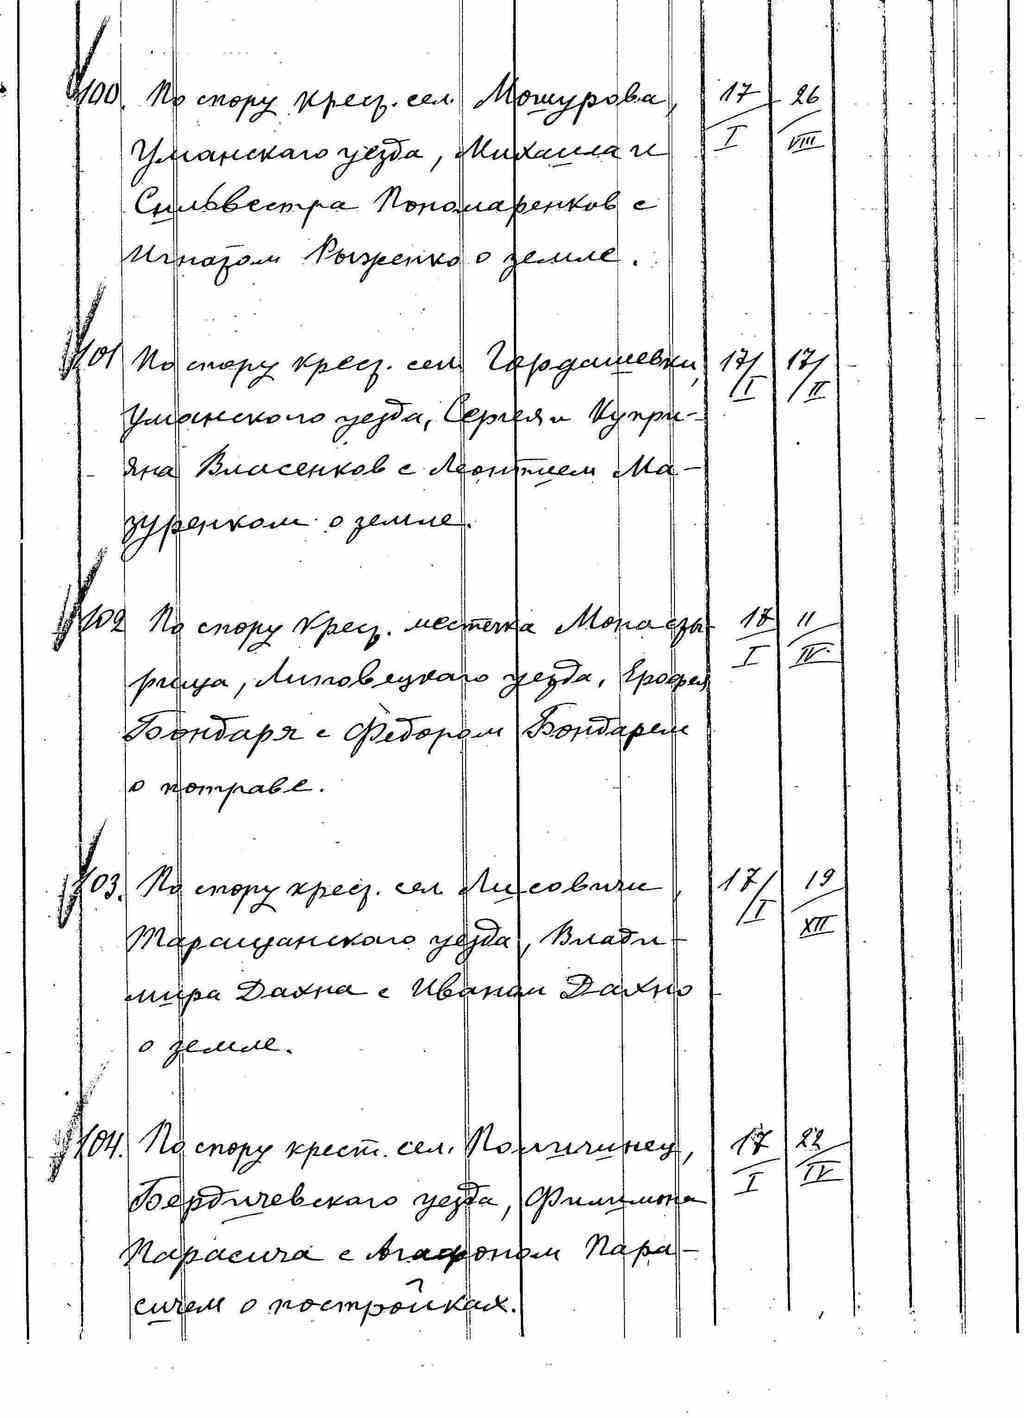 100. По спору крест. сел. Мошурова, 17/I 26/VIII
Уманскаго уезда, Михаила и
Сильвестра Пономаренков с
Игнатом Рыженко о земле.
101 По спору крест. сел. Гордашевки, 17/I 17/II
Уманского уезда, Сергея и Купри-
яна Власенков с Леонтием Ма-
зуренком о земле.
102 По спору крест. местечка Монасты- 17/I 11/IV
рища, Липовецкаго уезда, Ерофея
Бондаря с Федором Бондарем
о потраве.
103. По спору крест. сел Лисовичи, 17/I 19/XII
Таращанского уезда, Влади-
мира Дахна с Иваном Дахно
о земле.
104. По спору крест. сел. Поличинец, 17/I 22/IV
Бердичевскаго уезда, Филимона
Парасича с Агафоном Пара-
сичем о постройках.